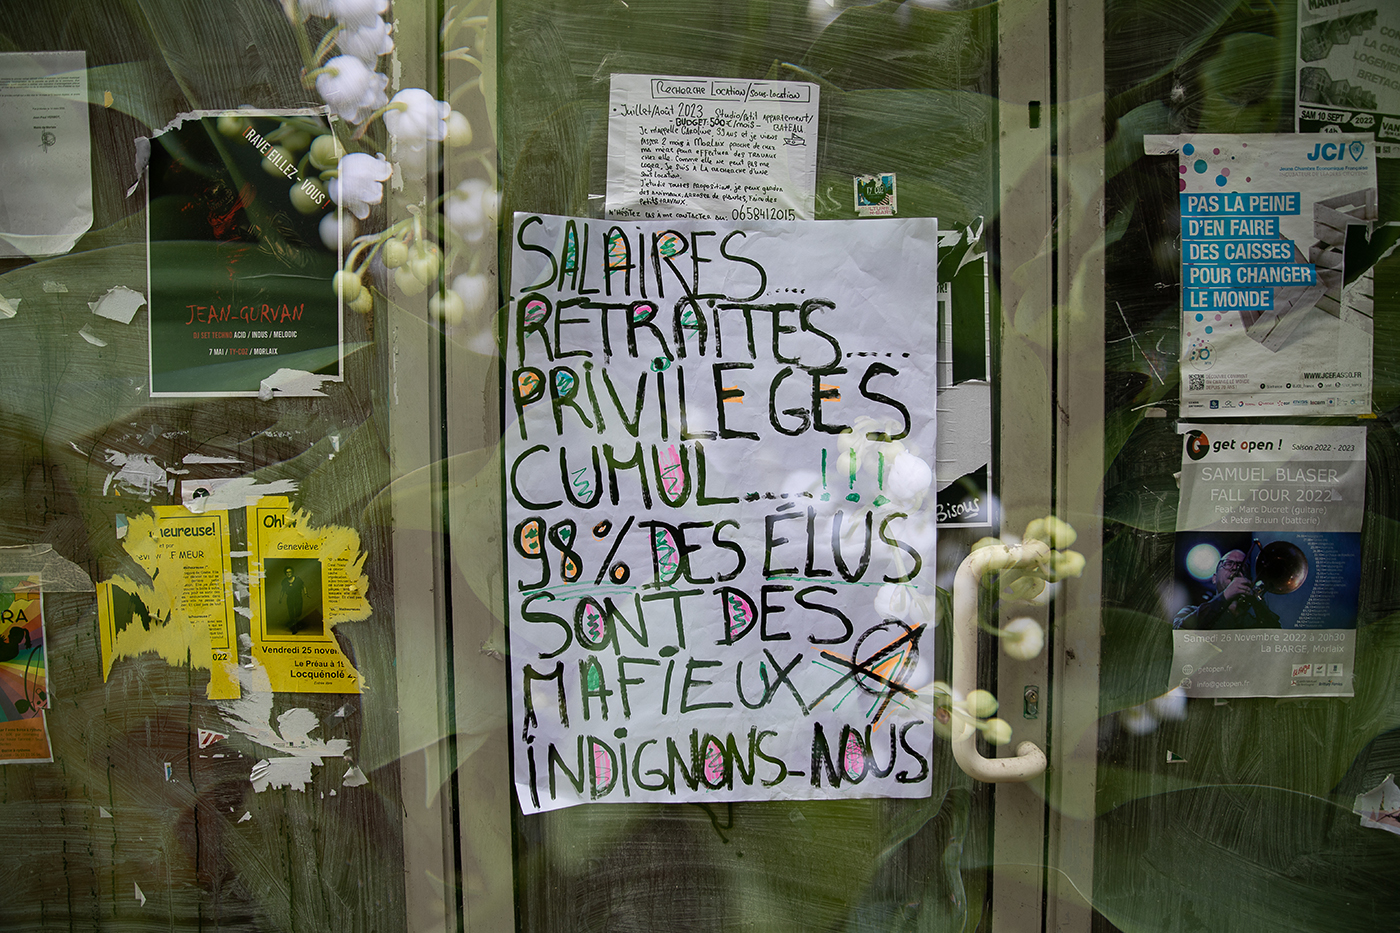 RAVE EILLEZ-VOUS
JEAN-GURVAN
DJ SET TECHNO ACID / INDUS / MELODIC
7 MAI / TY-COZ / MORLAIX
heureuse!
MEUR
022
Oh!
Geneviève
Vendredi 25 novem
Le Préau à 18
Locquénolé
RA
RECHERCHE LOCATION/SOUS-LOCATION
Juillet/Août 2023 Studio/petit appartement/
BATEAU
-BUDGET 500€/mois-
Je m'appelle Caroline, 39 ans et je viens
passer 2 mois à MORLAIX proche de chez
ma mère pour effectuer des travaux
chez elle. Comme elle ne peut pas me
loger, je suis à la recherche d'une
sous location.
J'étudie toutes proposition, je peux garder
des animaux, arroser de plantes, faire des
petits travaux.
N'hésitez pas à me contacter au: 0658412015
SALAIRES.....
RETRAITES.....
PRIVILEGES
CUMUL....!!!
98% DES ÉLUS
SONT DES
MAFIEUX
INDIGNONS-NOUS
Bisous
SAM 10 SEPT 2022
14h
JCI
Jeune Chambre Économique Française
PAS LA PEINE
D'EN FAIRE
DES CAISSES
POUR CHANGER
LE MONDE
WWW.JCEF.ASSO.FR
get open ! Saison 2022 - 2023
SAMUEL BLASER
FALL TOUR 2022
Feat. Marc Ducret (guitare)
& Peter Bruun (batterie)
Samedi 26 Novembre 2022 à 20h30
La BARGE, Morlaix
getopen.fr
info@getopen.fr